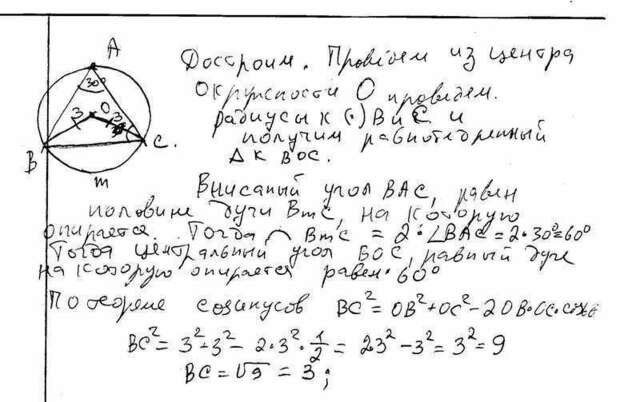 A
30°
O
3
3
B
C.
m
Достроим. Проведем из центра
окружности O проведем.
радиусы к (·) B и C. и
получим равнобедренный
Δ к BOC.
Вписаный угол BAC, равен
половине дуги BmC, на которую
опирается. Тогда ⌒ BmC = 2·∠BAC = 2·30°=60°
Тогда центральный угол BOC, равный дуге
на которую опирается равен· 60°
По теореме созинусов BC² = OB² + OC² - 2OB·OC·cos
BC² = 3² + 3² - 2·3²·1/2 = 2·3² - 3² = 3² = 9
BC = √9 = 3;